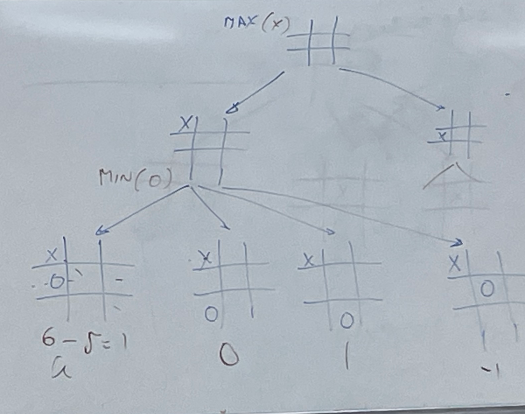 MAX(X)
X
X
MIN(O)
X
O
X
O
X
O
X
O
6-5=1
0
1
-1